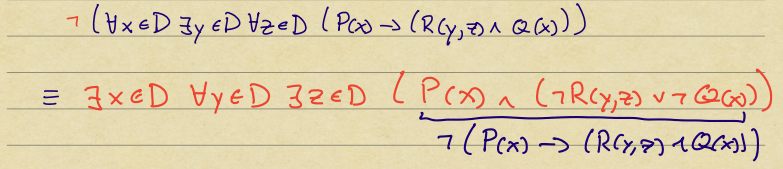 ¬(∀x∈D ∃y∈D ∀z∈D (P(x) → (R(y,z) ∧ Q(x)))
≡ ∃x∈D ∀y∈D ∃z∈D (P(x) ∧ (¬R(y,z) ∨ ¬Q(x)))
¬(P(x) → (R(y,z) ∧ Q(x)))